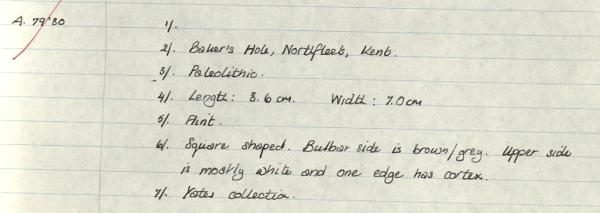 A. 79'80
1/.
2/. Baker's Hole, Northfleet, Kent.
3/. Paleolithic.
4/. Length: 8.6 cm. Width: 7.0 cm
5/. Flint.
6/. Square shaped. Bulbar side is brown/grey. Upper side
is mostly white and one edge has cortex.
7/. Yates collection.